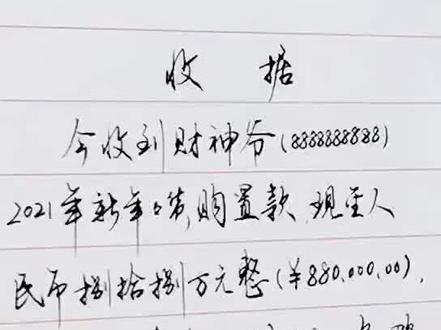 收 据
今收到财神爷(8888888888)
2021年新年购置款,现金人
民币捌拾捌万元整(¥880,000.00),